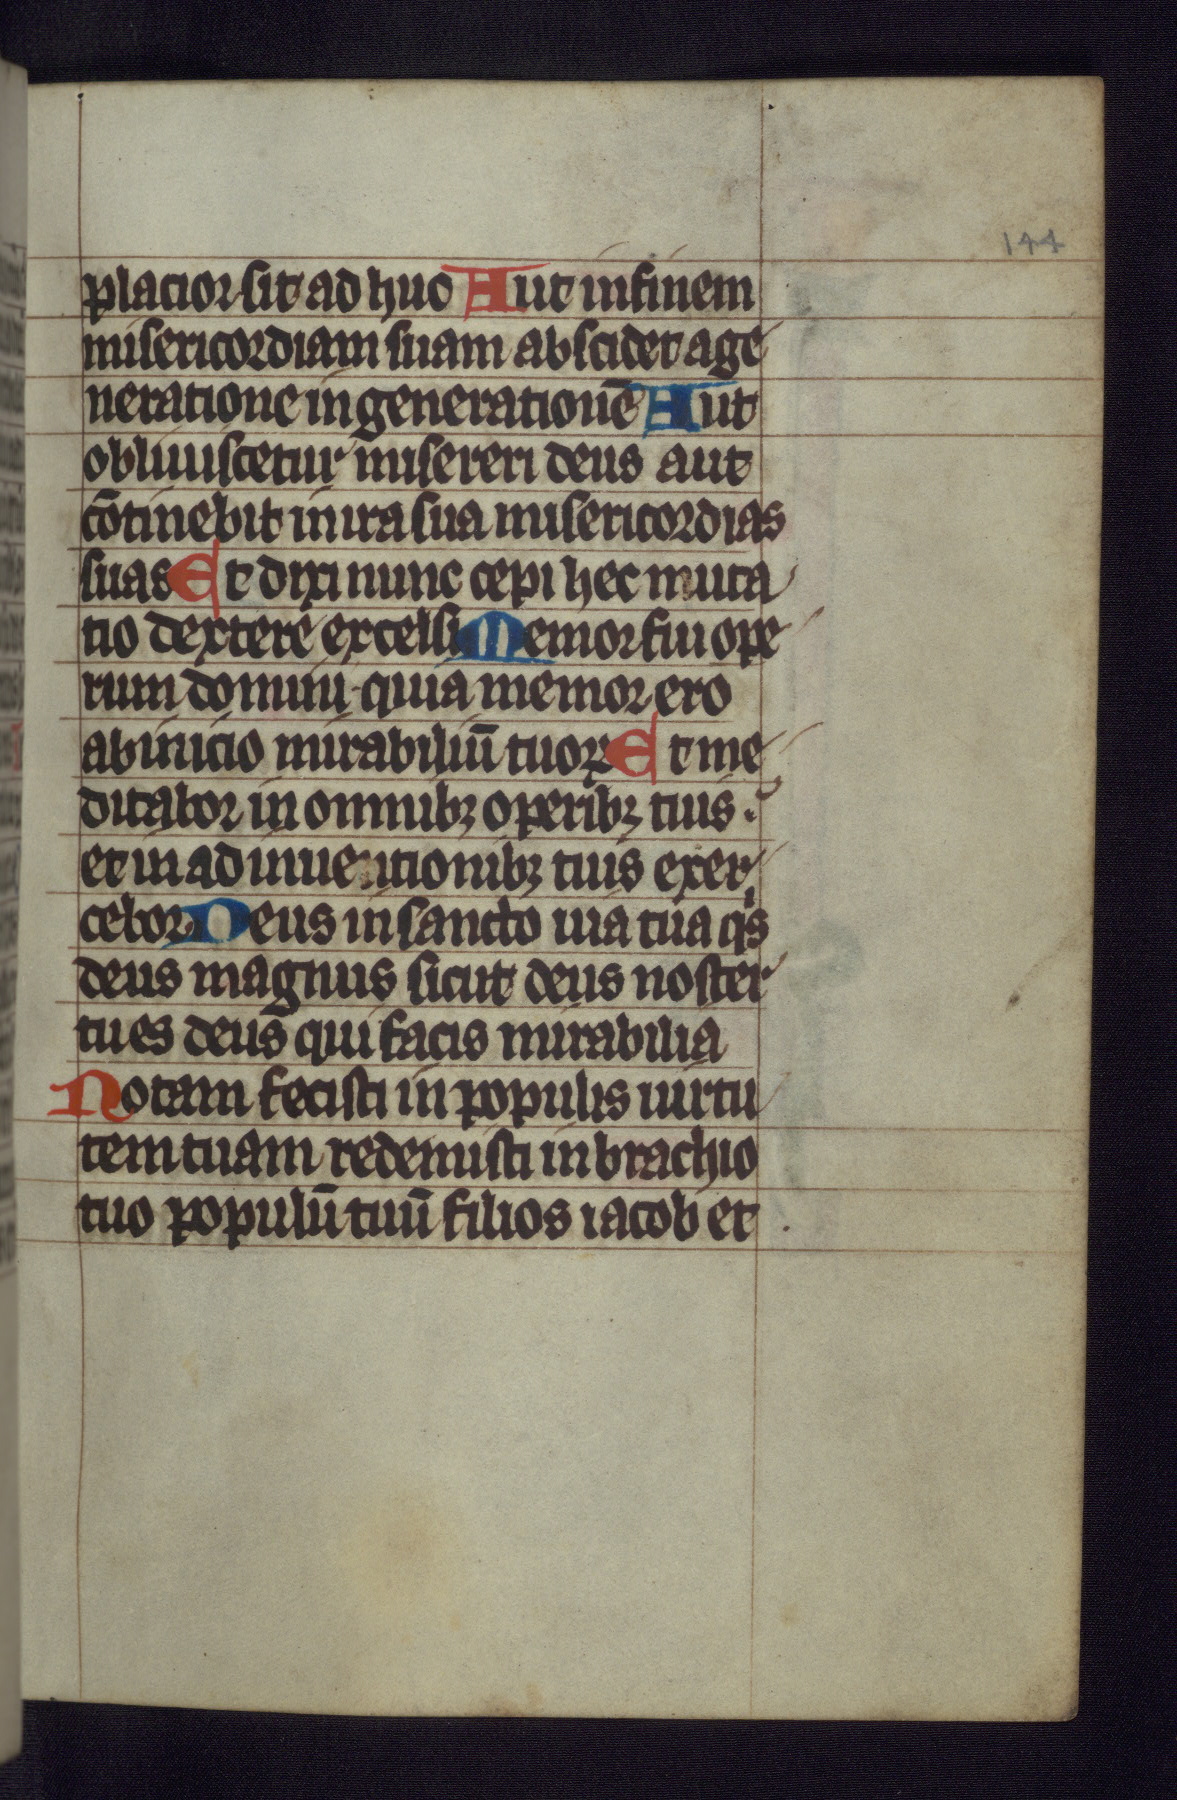 144
placior sit ad huc Aut in finem
misericordiam suam abscidet age
neratione in generationē Aut
obliuiscetur misereri deus aut
cōtinebit in ira sua misericordias
suas Et dixi nunc cepi hec muta
tio dextere excelsi Memor fui ope
rum domini quia memor ero
ab inicio mirabiliū tuoꝝ Et me
ditabor in omnibꝫ operibꝫ tuis.
et in adinuentionibꝫ tuis exer
cebor Deus in sancto uia tua qⁱs
deus magnus sicut deus noster
tu es deus qui facis mirabilia
Notam fecisti in populis uirtu
tem tuam redemisti in brachio
tuo populū tuū filios iacob et